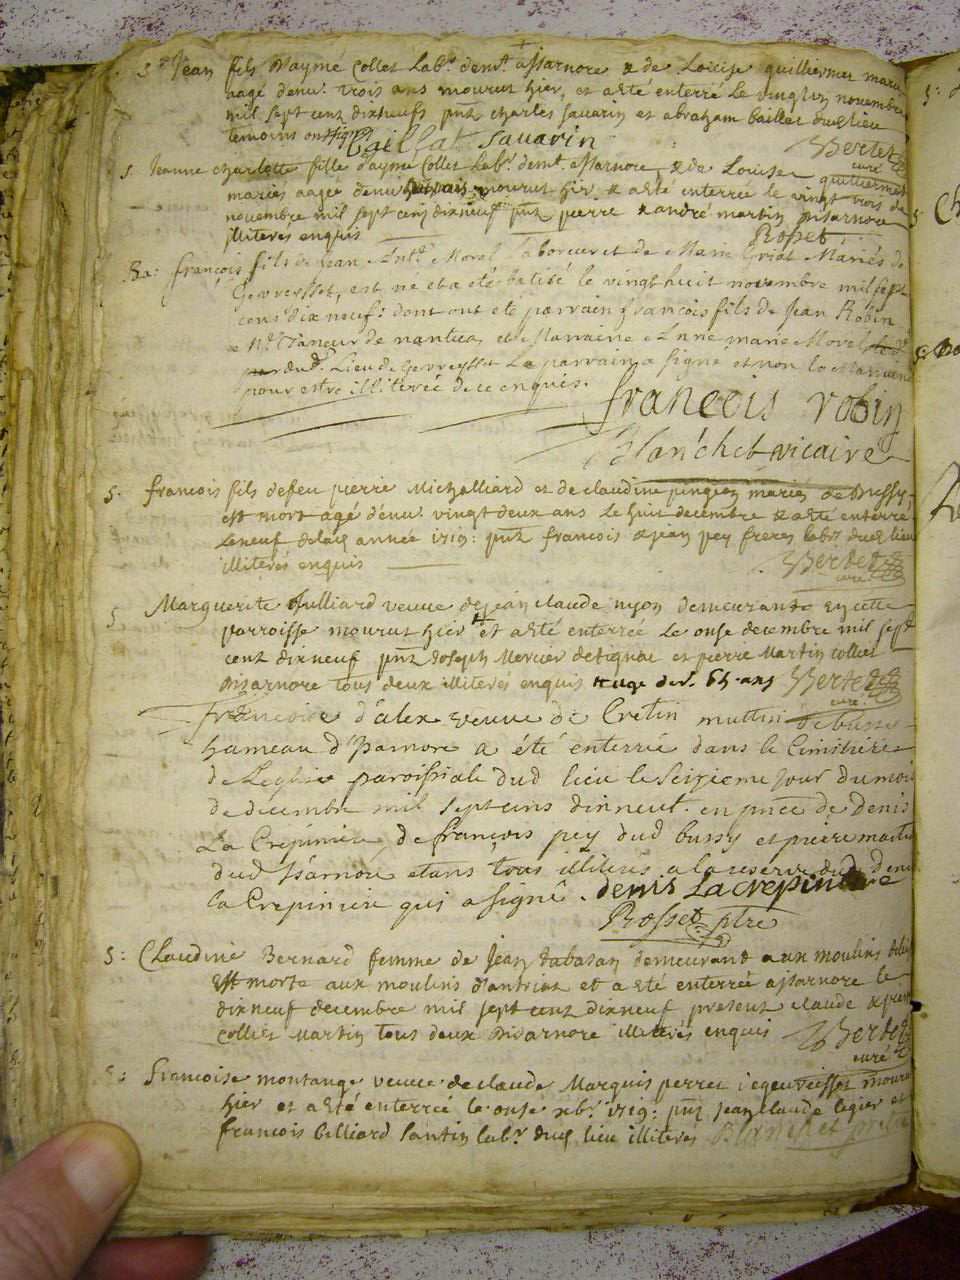 S. Jean fils d'aymé Collet lab.r dem.t a Isarnore & de Loüise quilliermet mariés
aagé d'env. trois ans mourut hier, et a esté enterré le vingt un novembre
mil sept cent dixneuf pnt charles Savarin et abraham baillat dud lieu
temoins
Caillat Savarin
Berdet
curé
S. Jeanne charlotte fille d'aymé Collet lab.r dem.t a Isarnore, & de Louise quilliermet
mariés aagée d'env. mourut hier & a esté enterrée le vingt trois de
novembre mil sept cent dixneuf pnt pierre & andré martin d'Isarnore
illiterés enquis
Rosset
Ba: françois fils de Jean Ant.e Morel laboreur et de Marie Griot Mariés de
Gevresset, est né et a eté batisé le vingt huit novembre mil sept
cens dix neuf: dont ont eté parrain francois fils de Jean Robin
Taneur de nantua, et Marraine Anne marie Morel
dud. Lieu de Gevreysset Le parrain a signé et non la Marraine
pour estre illiterée de ce enquise.
françois robin
Blanchet vicaire
S. francois fils de feu pierre Michalliard et de claudine pingeon mariés de Bussy
est mort agé d'env. vingt deux ans le huit decembre & a esté enterré
le neuf de lad année 1719: pnt francois & jean pey freres lab.rs dud lieu
illiterés enquis
Berdet
curé
S Marguerite Julliard veuve de jean claude nyon demeurante en cette
parroisse mourut hier et a esté enterrée le onse decembre mil sept
cent dixneuf pnt Joseph Mercier de tignat et pierre Martin collier
d'Isarnore tous deux illiterés enquis & age d'ev. 65 ans Berdet
curé
françoise d'alex veuve de Cretin muttin de bussy
hameau d'Isarnore a été enterrée dans le Cimitiere
de Leglise paroissiale dud lieu le seizieme jour du mois
de decembre mil sept cens dixneuf. en pnce de Denis
La Crepiniere, de françois pey dud bussy et pierre martin
dud Isarnore etans tous illiterés a la reserve dud denis
la Crepiniere qui a signé. denis Lacrepiniere
Rosset ptre
S: Claudine Bernard femme de Jean tabasan demeurant aux moulins
Est morte aux moulins d'antrias et a esté enterrée a Isarnore le
dixneuf decembre mil sept cent dixneuf, present claude & pierre
collier Martin tous deux d'Isarnore illiterés enquis Berdet
curé
S: francoise montange veuve de claude Marquis perret gevreisset mourut
hier et a esté enterrée le onse xbr. 1719: pnt jean claude legier et
francois billiard lab.r dud lieu illiterés Blanchet